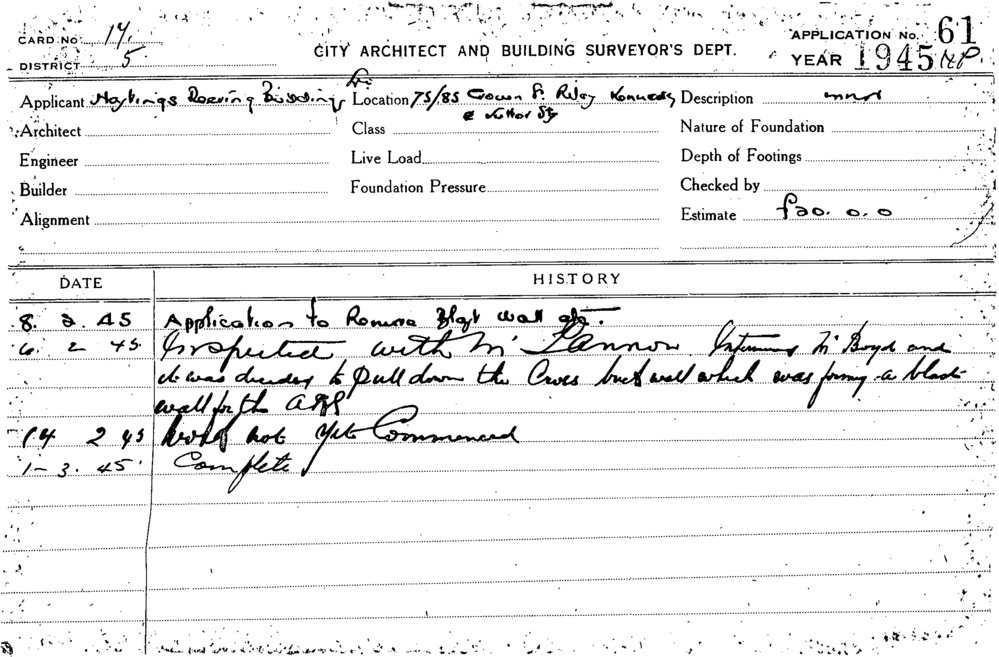 CARD NO. 14.
DISTRICT 5
CITY ARCHITECT AND BUILDING SURVEYOR'S DEPT.
APPLICATION No. 61
YEAR 1945
Applicant Hastings Deering Building
Location 75/85 Riley Kennedy
& Sts
Description
Architect
Class
Nature of Foundation
Engineer
Live Load
Depth of Footings
Builder
Foundation Pressure
Checked by
Alignment
Estimate £20. 0. 0
DATE
HISTORY
8. 2. 45 Application to Remove Blast wall etc.
6. 2 45 Inspected with Mr Mr Boyd and
it was decided to Pull down the brick wall which was a blast
wall for the
14 2 45 Work not yet Commenced
1-3. 45 Complete